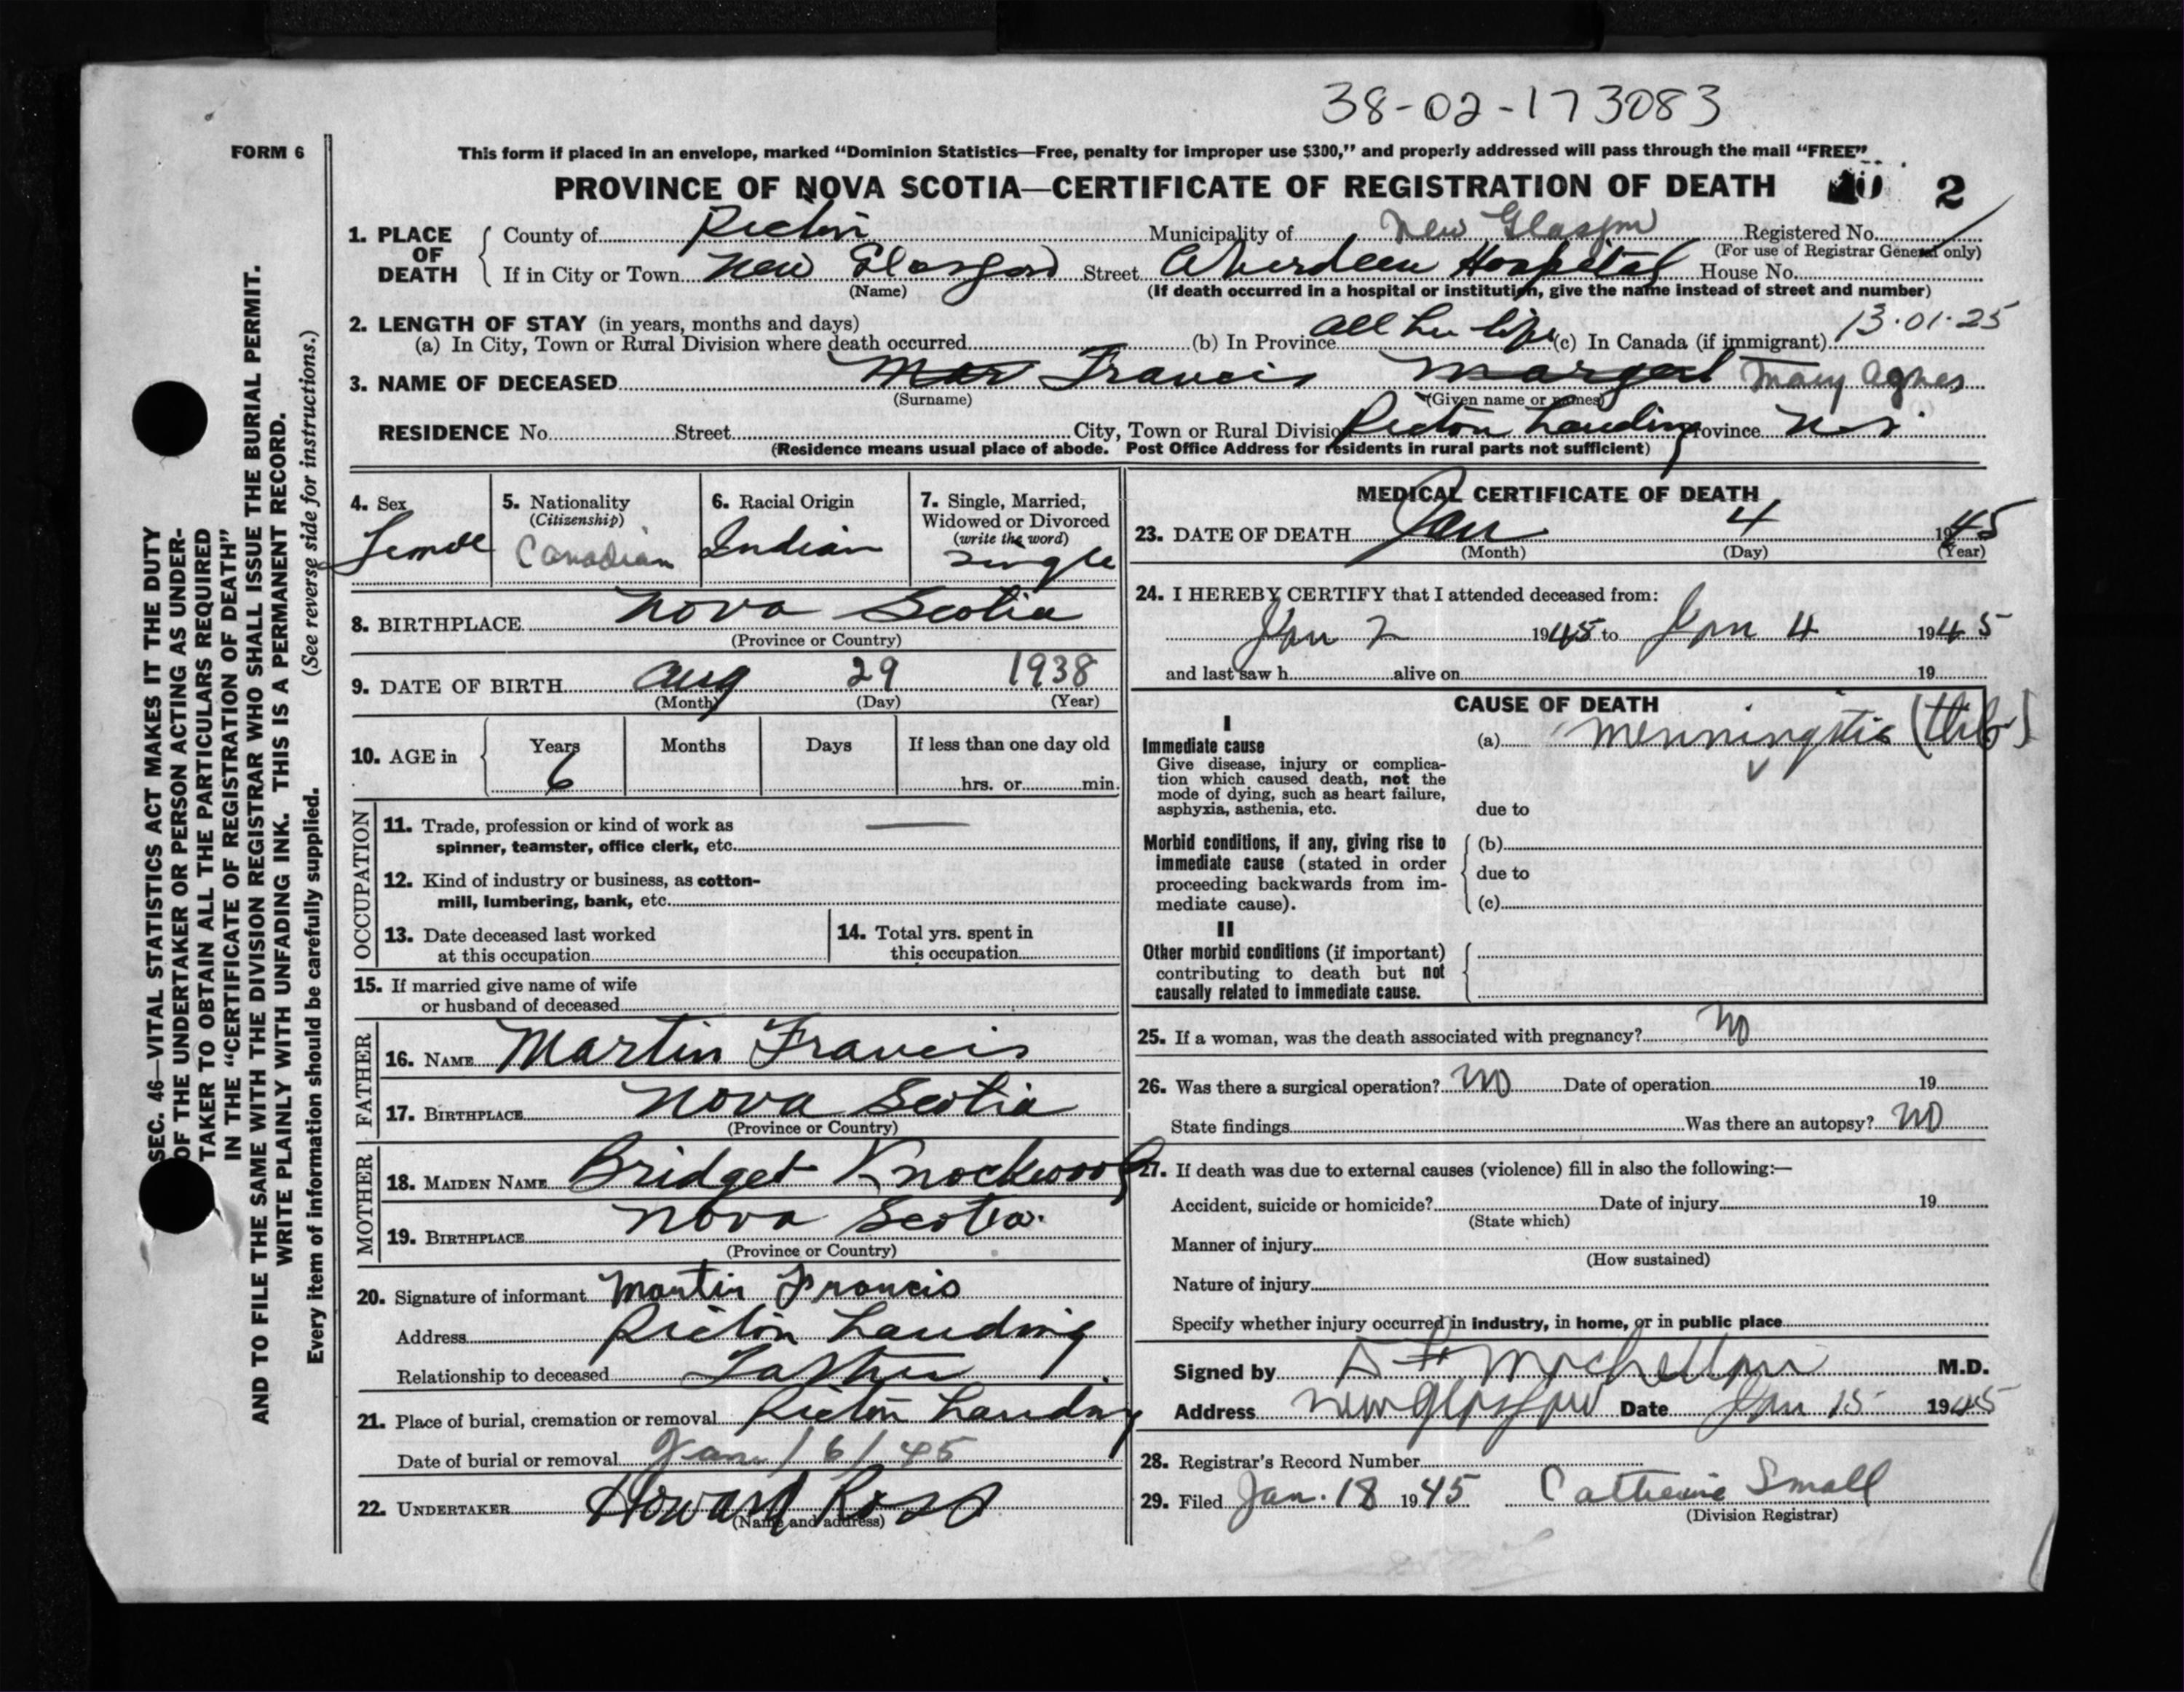 38-02-173083
FORM 6
This form if placed in an envelope, marked “Dominion Statistics—Free, penalty for improper use $300,” and properly addressed will pass through the mail “FREE”
PROVINCE OF NOVA SCOTIA—CERTIFICATE OF REGISTRATION OF DEATH 2
SEC. 46—VITAL STATISTICS ACT MAKES IT THE DUTY
OF THE UNDERTAKER OR PERSON ACTING AS UNDER-
TAKER TO OBTAIN ALL THE PARTICULARS REQUIRED
IN THE “CERTIFICATE OF REGISTRATION OF DEATH”
AND TO FILE THE SAME WITH THE DIVISION REGISTRAR WHO SHALL ISSUE THE BURIAL PERMIT.
WRITE PLAINLY WITH UNFADING INK. THIS IS A PERMANENT RECORD.
Every item of information should be carefully supplied. (See reverse side for instructions.)
1. PLACE OF DEATH
County of Pictou Municipality of New Glasgow Registered No.
(For use of Registrar General only)
If in City or Town New Glasgow Street Aberdeen Hospital House No.
(Name) (If death occurred in a hospital or institution, give the name instead of street and number)
2. LENGTH OF STAY (in years, months and days)
(a) In City, Town or Rural Division where death occurred (b) In Province all her life (c) In Canada (if immigrant) 13.01.25
3. NAME OF DECEASED Mar Francis Margaret Mary Agnes
(Surname) (Given name or names)
RESIDENCE No. Street City, Town or Rural Division Pictou Landing Province N.S.
(Residence means usual place of abode. Post Office Address for residents in rural parts not sufficient)
4. Sex Female
5. Nationality (Citizenship) Canadian
6. Racial Origin Indian
7. Single, Married, Widowed or Divorced (write the word) Single
8. BIRTHPLACE Nova Scotia
(Province or Country)
9. DATE OF BIRTH Aug 29 1938
(Month) (Day) (Year)
10. AGE in Years Months Days If less than one day old
6 hrs. or min.
OCCUPATION
11. Trade, profession or kind of work as
spinner, teamster, office clerk, etc.
12. Kind of industry or business, as cotton-
mill, lumbering, bank, etc.
13. Date deceased last worked
at this occupation
14. Total yrs. spent in
this occupation
15. If married give name of wife
or husband of deceased
FATHER
16. NAME Martin Francis
17. BIRTHPLACE Nova Scotia
(Province or Country)
MOTHER
18. MAIDEN NAME Bridget Knockwood
19. BIRTHPLACE Nova Scotia.
(Province or Country)
20. Signature of informant Martin Francis
Address Pictou Landing
Relationship to deceased Father
21. Place of burial, cremation or removal Pictou Landing
Date of burial or removal Jan / 6 / 45
22. UNDERTAKER Howard Ross
(Name and address)
MEDICAL CERTIFICATE OF DEATH
23. DATE OF DEATH Jan 4 1945
(Month) (Day) (Year)
24. I HEREBY CERTIFY that I attended deceased from:
Jan 2 1945 to Jan 4 1945
and last saw h alive on 19
CAUSE OF DEATH
I
Immediate cause
Give disease, injury or complica-
tion which caused death, not the
mode of dying, such as heart failure,
asphyxia, asthenia, etc.
(a) Menningitis
due to
Morbid conditions, if any, giving rise to
immediate cause (stated in order
proceeding backwards from im-
mediate cause).
(b)
due to
(c)
II
Other morbid conditions (if important)
contributing to death but not
causally related to immediate cause.
25. If a woman, was the death associated with pregnancy? No
26. Was there a surgical operation? No Date of operation 19
State findings Was there an autopsy? No
27. If death was due to external causes (violence) fill in also the following:—
Accident, suicide or homicide? Date of injury 19
(State which)
Manner of injury
(How sustained)
Nature of injury
Specify whether injury occurred in industry, in home, or in public place
Signed by M.D.
Address New Glasgow Date Jan 15 1945
28. Registrar's Record Number
29. Filed Jan. 18 1945 Catherine Small
(Division Registrar)